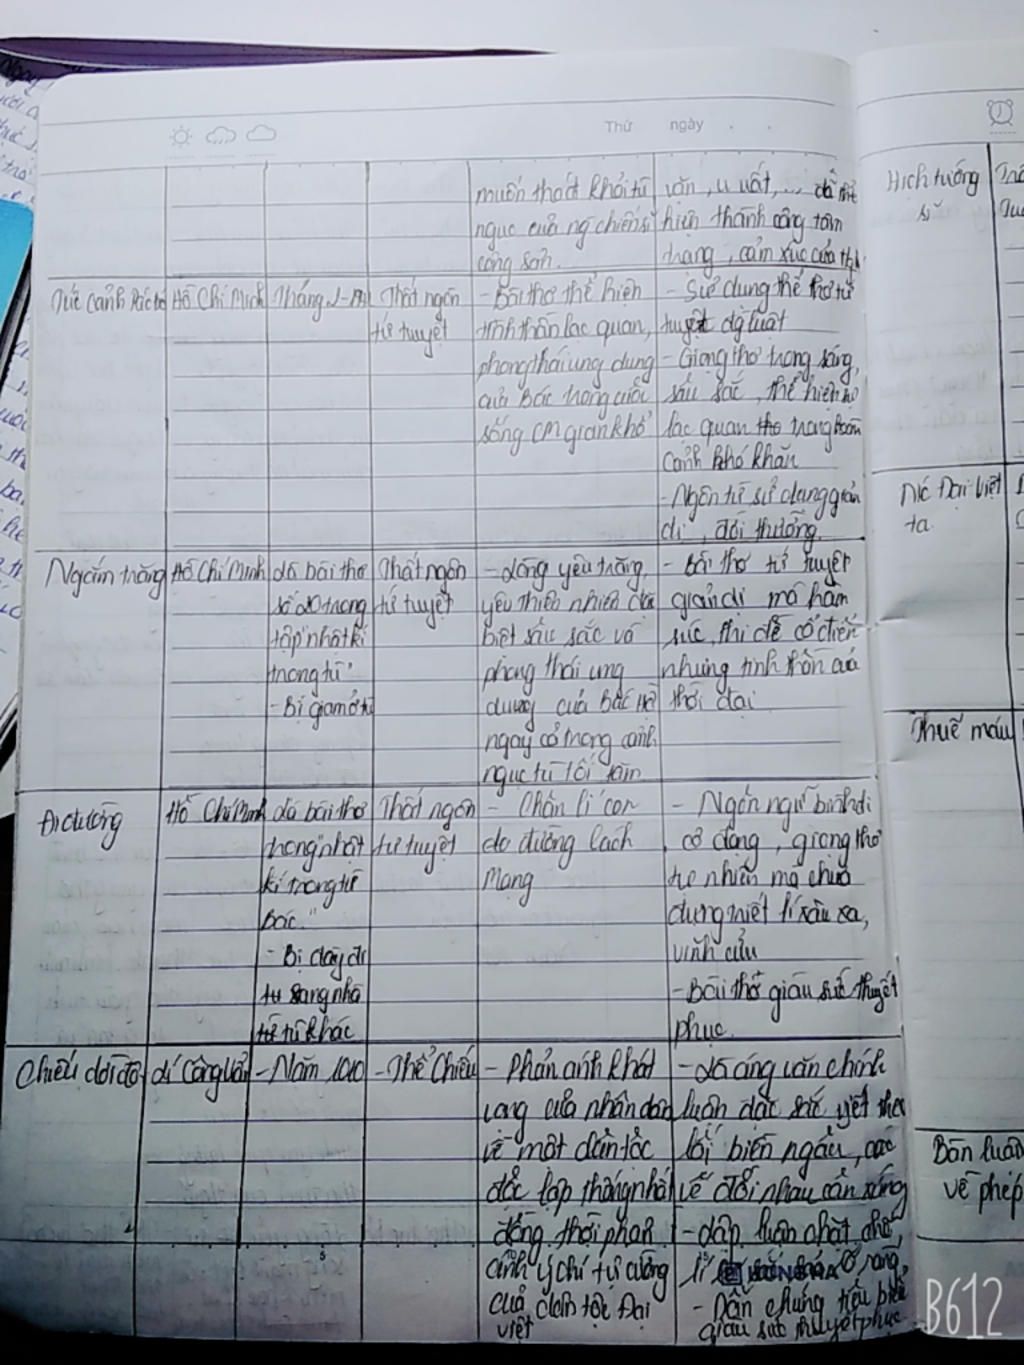 Thứ ngày
muốn thoát khỏi tù
ngục của ng chiến sĩ
cộng sản.
văn, u uất, ... đã thể
hiện thành công tâm
trạng, cảm xúc của
Tức cảnh Pác bó
Hồ Chí Minh
Tháng 2-
Thất ngôn
tứ tuyệt
- Bài thơ thể hiện
tinh thần lạc quan,
phong thái ung dung
của Bác trong cuộc
sống CM gian khổ
- Sử dụng thể thơ tứ
tuyệt đg luật
- Giọng thơ trong sáng,
sâu sắc, thể hiện sự
lạc quan thơ trong hoàn
cảnh khó khăn
- Ngôn từ sử dụng giản
dị, đời thường.
Ngắm trăng
Hồ Chí Minh
là bài thơ
số 20 trong
tập "nhật kí
trong tù"
- Bị giam ở tù
Thất ngôn
tứ tuyệt
- Lòng yêu trăng,
yêu thiên nhiên đặc
biệt sâu sắc và
phong thái ung
dung của Bác Hồ
ngay cả trong cảnh
ngục tù tối tăm
- Bài thơ tứ tuyệt
giản dị mà hàm
súc, thi đề cổ điển
nhưng tinh thần của
thời đại
Đi đường
Hồ Chí Minh
là bài thơ
trong "nhật
kí trong tù
Bác."
- Bị đày đi
từ sang nhà
tù khác
Thất ngôn
tứ tuyệt
- Chân lí con
đường cách
mạng
- Ngôn ngữ bình dị
cô đọng, giọng thơ
tự nhiên mà chứa
đựng triết lí sâu xa,
vĩnh cửu
- Bài thơ giàu sức thuyết
phục.
Chiếu dời đô
Lí Công Uẩn
- Năm 1010
- Thể Chiếu
- Phản ánh khát
vọng của nhân dân
về một dân tộc
độc lập thống nhất
đồng thời phản
ánh ý chí tự cường
của dân tộc Đại
việt
- Là áng văn chính
luận đặc sắc viết theo
lối biền ngẫu, các
vế đối nhau cân xứng
- Lập luận chặt chẽ,
lí rõ ràng,
- Dẫn chứng tiêu biểu
giàu sức thuyết phục
Hịch tướng
sĩ
Nc Đại Việt
ta
Thuế máu
Bàn luận
về phép
B612